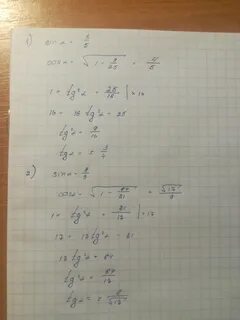 1) sin α = 3/5
cos α = √(1 - 9/25) = 4/5
1 + tg²α = 25/16 | · 16
16 + 16 tg²α = 25
tg²α = 9/16
tg α = ± 3/4
2) sin α = 8/9
cos α = √(1 - 64/81) = √17/9
1 + tg²α = 81/17 | · 17
17 + 17 tg²α = 81
17 tg²α = 64
tg²α = 64/17
tg α = ± 8/√17